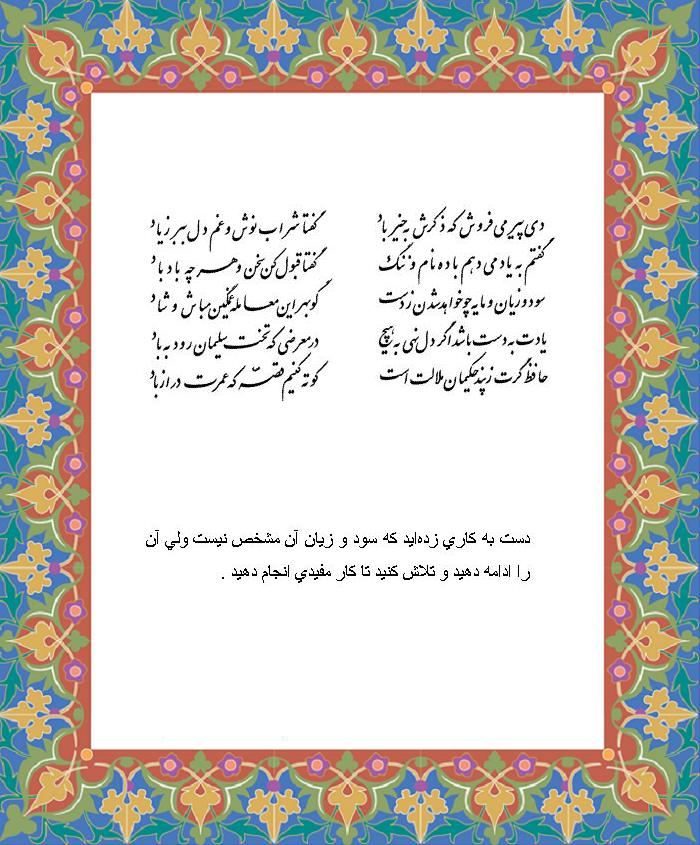 دی پیر می فروش که ذکرش به خیر باد گفتا شراب نوش و غم دل ببر ز یاد
گفتم به باد می دهدم باده نام و ننگ گفتا قبول کن سخن و هر چه باد باد
سود و زیان و مایه چو خواهد شدن ز دست گو بهر این معامله غمگین مباش و شاد
بادت به دست باشد اگر دل نهی به هیچ در معرضی که تخت سلیمان رود به باد
حافظ گرت ز پند حکیمان ملالت است کوته کنیم قصه که عمرت دراز باد
دست به كاري زده‌ايد كه سود و زيان آن مشخص نيست ولي آن
را ادامه دهيد و تلاش كنيد تا كار مفيدي انجام دهيد .